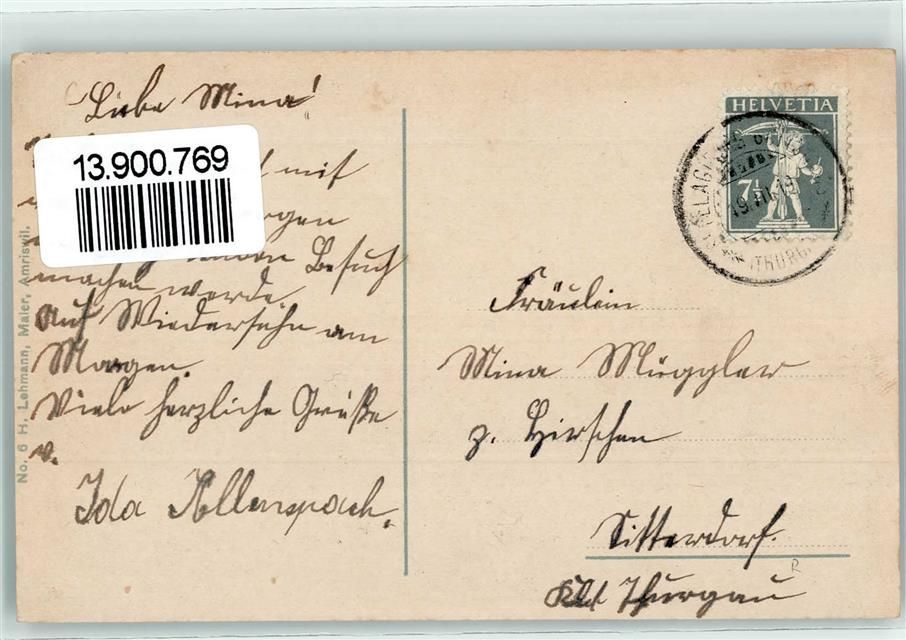 Liebe Mina!
13.900.769
mit
morgen
Besuch
machen werde.
Auf Wiedersehn am
Morgen.
Viele herzliche Grüße
v.
Ida Allenspach.
No. 6 H. Lehmann, Maler, Amriswil.
HELVETIA
7½
(THURG
Fräulein
Mina Müggler
z. Hirschen
Sitterdorf.
Kt Thurgau